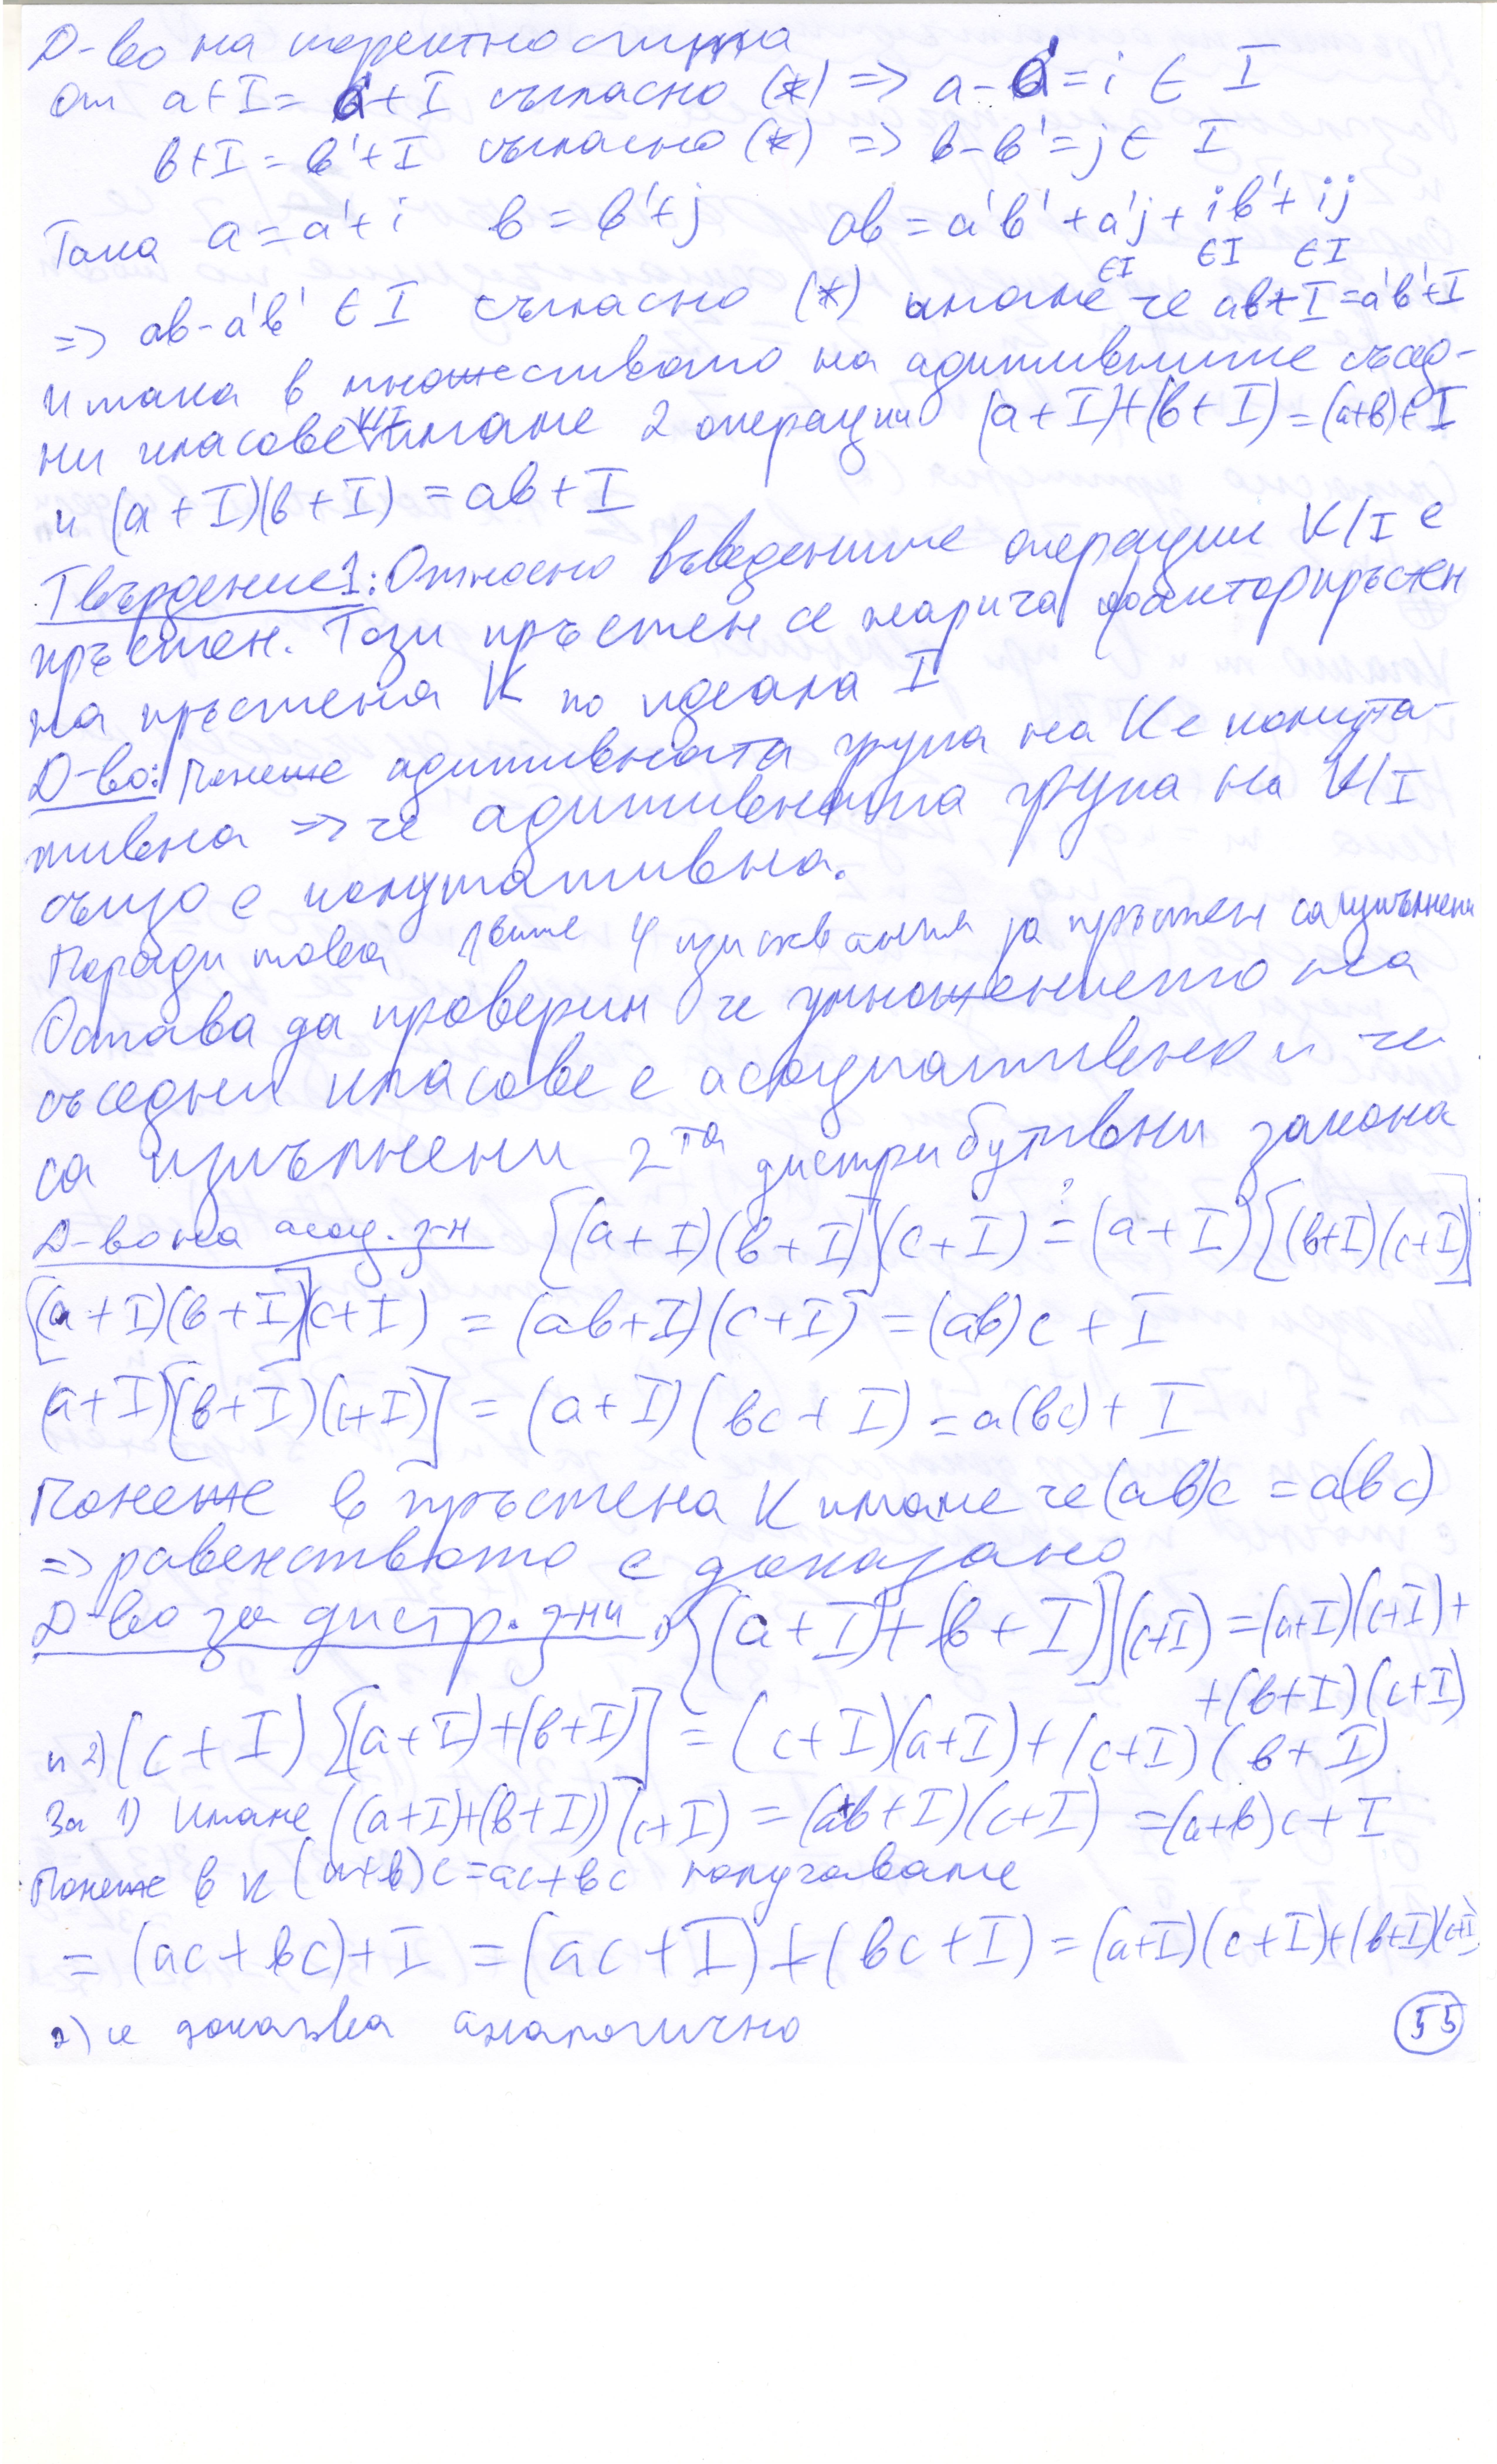 Д-во на коректността
От a+I = a'+I съгласно (*) => a-a' = i ∈ I
в+I = в'+I съгласно (*) => в-в' = j ∈ I
Така a = a'+i в = в'+j ав = a'в' + a'j + iв' + ij
∈I ∈I ∈I
=> ав-a'в' ∈ I съгласно (*) имаме че ав+I = a'в'+I
И така в множеството на адитивните съсед-
ни класове K/I имаме 2 операции (a+I)+(в+I) = (a+в)+I
и (a+I)(в+I) = ав+I
Твърдение 1: Относно въведените операции K/I е
пръстен. Този пръстен се нарича факторпръстен
на пръстена K по идеала I
Д-во: Понеже адитивната група на K е комута-
тивна => че адитивната група на K/I
също е комутативна.
Поради това 1вите 4 изисквания за пръстен са изпълнени
Остава да проверим че умножението на
съседни класове е асоциативно и че
са изпълнени 2та дистрибутивни закона
Д-во на асоц. з-н [(a+I)(в+I)](c+I) ?= (a+I)[(в+I)(c+I)]
[(a+I)(в+I)](c+I) = (ав+I)(c+I) = (ав)c+I
(a+I)[(в+I)(c+I)] = (a+I)(вc+I) = a(вc)+I
Понеже в пръстена K имаме че (ав)c = a(вc)
=> равенството е доказано
Д-во за дистр. з-ни 1) [(a+I)+(в+I)](c+I) = (a+I)(c+I)+
+(в+I)(c+I)
и 2) (c+I)[(a+I)+(в+I)] = (c+I)(a+I)+(c+I)(в+I)
За 1) Имаме ((a+I)+(в+I))(c+I) = (a+в+I)(c+I) = (a+в)c+I
Понеже в K (a+в)c = ac+вc получаваме
= (ac+вc)+I = (ac+I)+(вc+I) = (a+I)(c+I)+(в+I)(c+I)
2) се доказва аналогично
55